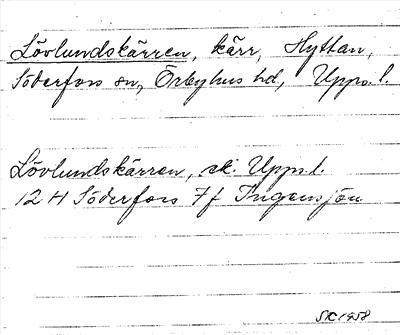 Lövlundskärren, kärr, Hyttan,
Söderfors sn, Örbyhus hd, Upps. l.
Lövlundskärren, ek. Upps. l.
12 H Söderfors 7 f Ingensjön
SK 1958